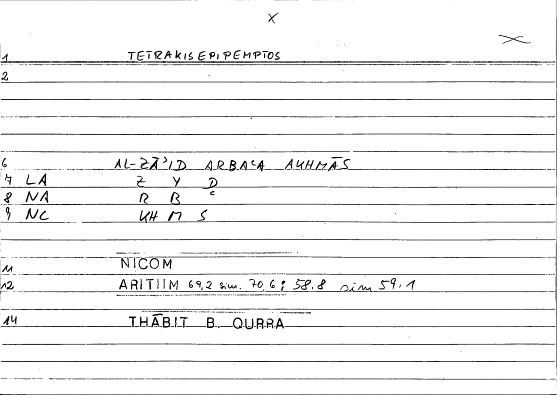 X
1 TETRAKISEPIPEMPTOS
2
6 AL-ZĀʾID ARBAʿA AKHMĀS
7 LA Z Y D
8 NA R B ʿ
9 NC KH M S
11 NICOM
12 ARITIIM 69,2 sim. 70,6; 58,8 sim 59,1
14 THĀBIT B. QURRA